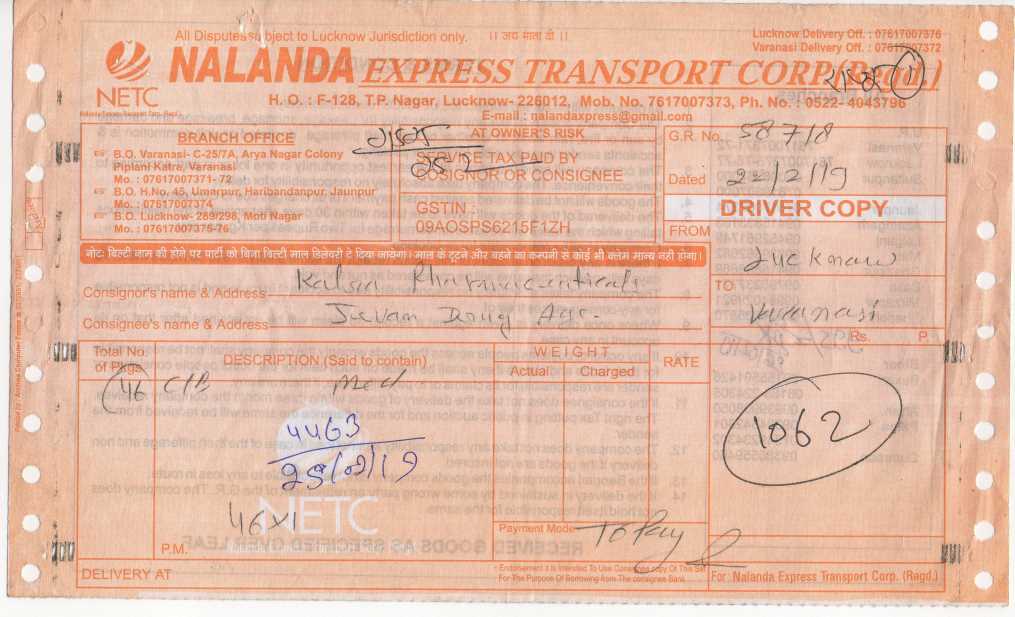 All Disputes subject to Lucknow Jurisdiction only. ।। जय माता दी ।।
Lucknow Delivery Off. : 07617007376
Varanasi Delivery Off. : 07617007372
NALANDA EXPRESS TRANSPORT CORP.(Regd.)
NETC
H. O. : F-128, T.P. Nagar, Lucknow- 226012, Mob. No. 7617007373, Ph. No. : 0522- 4043796
E-mail : nalandaxpress@gmail.com
BRANCH OFFICE
B.O. Varanasi- C-25/7A, Arya Nagar Colony
Piplani Katra, Varanasi
Mo. : 07617007371-72
B.O. H.No. 45, Umarpur, Haribandanpur, Jaunpur
Mo. : 07617007374
B.O. Lucknow- 289/298, Moti Nagar
Mo. : 07617007375-76
AT OWNER'S RISK
SERVICE TAX PAID BY
COSIGNOR OR CONSIGNEE
GSTIN :
09AOSPS6215F1ZH
G.R. No. 58718
Dated 22/2/19
DRIVER COPY
FROM
Lucknow
TO
Varanasi
नोट: बिल्टी नाम की होने पर पार्टी को बिना बिल्टी माल डिलेवरी दे दिया जायेगा। माल के टूटने और बहने का कम्पनी से कोई भी क्लेम मान्य नहीं होगा।
Consignor's name & Address Kalsia Pharmaceuticals
Consignee's name & Address Jeevan Drug Agc.
Total No. of Pkgs.
DESCRIPTION (Said to contain)
WEIGHT
Actual Charged
RATE
Rs. P.
46 C/B Med
1062
4463
25/02/19
46x1
NETC
P.M.
Payment Mode To Pay
DELIVERY AT
For: Nalanda Express Transport Corp. (Ragd.)